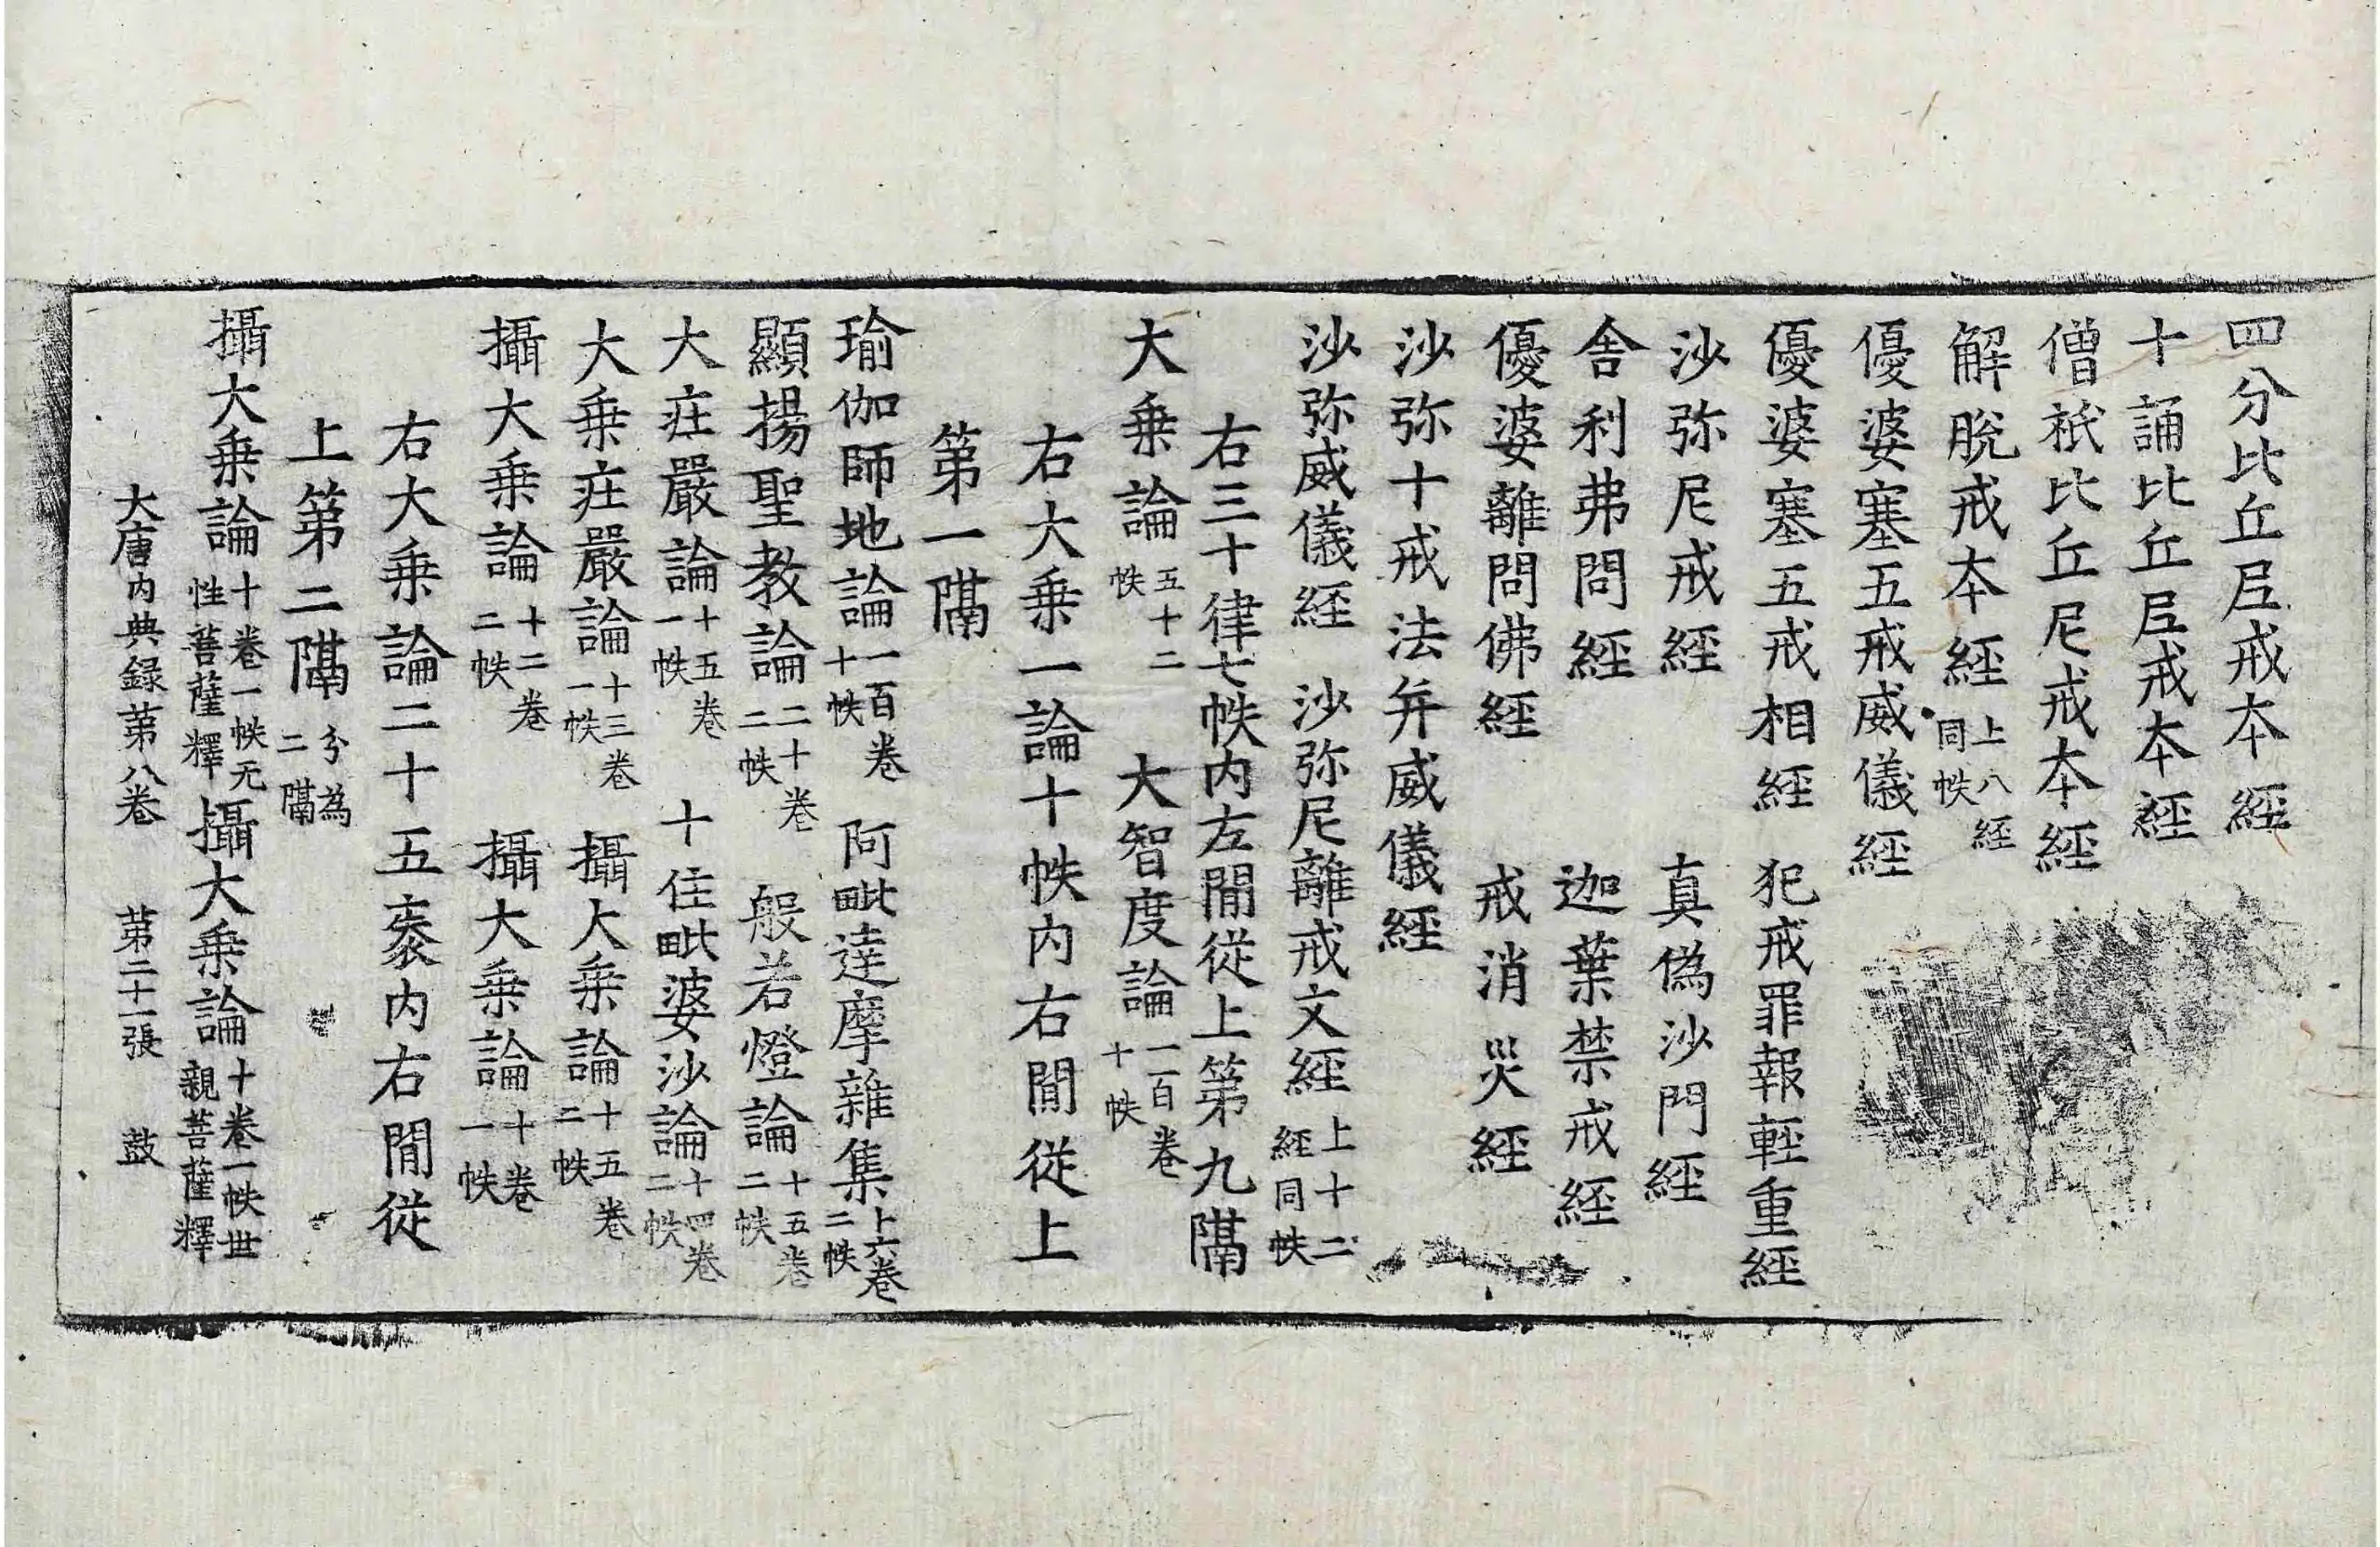 四分比丘尼戒本經
十誦比丘尼戒本經
僧祇比丘尼戒本經
解脫戒本經上八經同帙
優婆塞五戒威儀經
優婆塞五戒相經 犯戒罪報輕重經
沙弥尼戒經 真偽沙門經
舍利弗問經 迦葉禁戒經
優婆離問佛經 戒消災經
沙弥十戒法并威儀經
沙弥威儀經 沙弥尼離戒文經上十二經同帙
右三十律七帙内左間從上第九隔
大乗論五十二帙 大智度論一百卷十帙
右大乗一論十帙内右間從上
第一隔
瑜伽師地論一百卷十帙 阿毗達摩雜集上六卷二帙
顯揚聖教論二十卷二帙 般若燈論十五卷二帙
大莊嚴論十五卷一帙 十住毗婆沙論十四卷二帙
大乗莊嚴論十三卷一帙 攝大乗論十五卷二帙
攝大乗論十二卷二帙 攝大乗論十卷一帙
右大乗論二十五袠内右間從
上第二隔分為二隔
攝大乗論十卷一帙无性菩薩釋 攝大乗論十卷一帙世親菩薩釋
大唐内典録第八卷 第二十一張 鼓